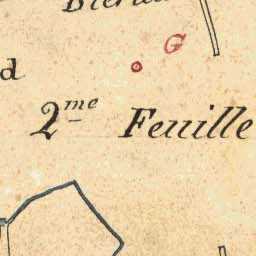 G
d
2me Feuille